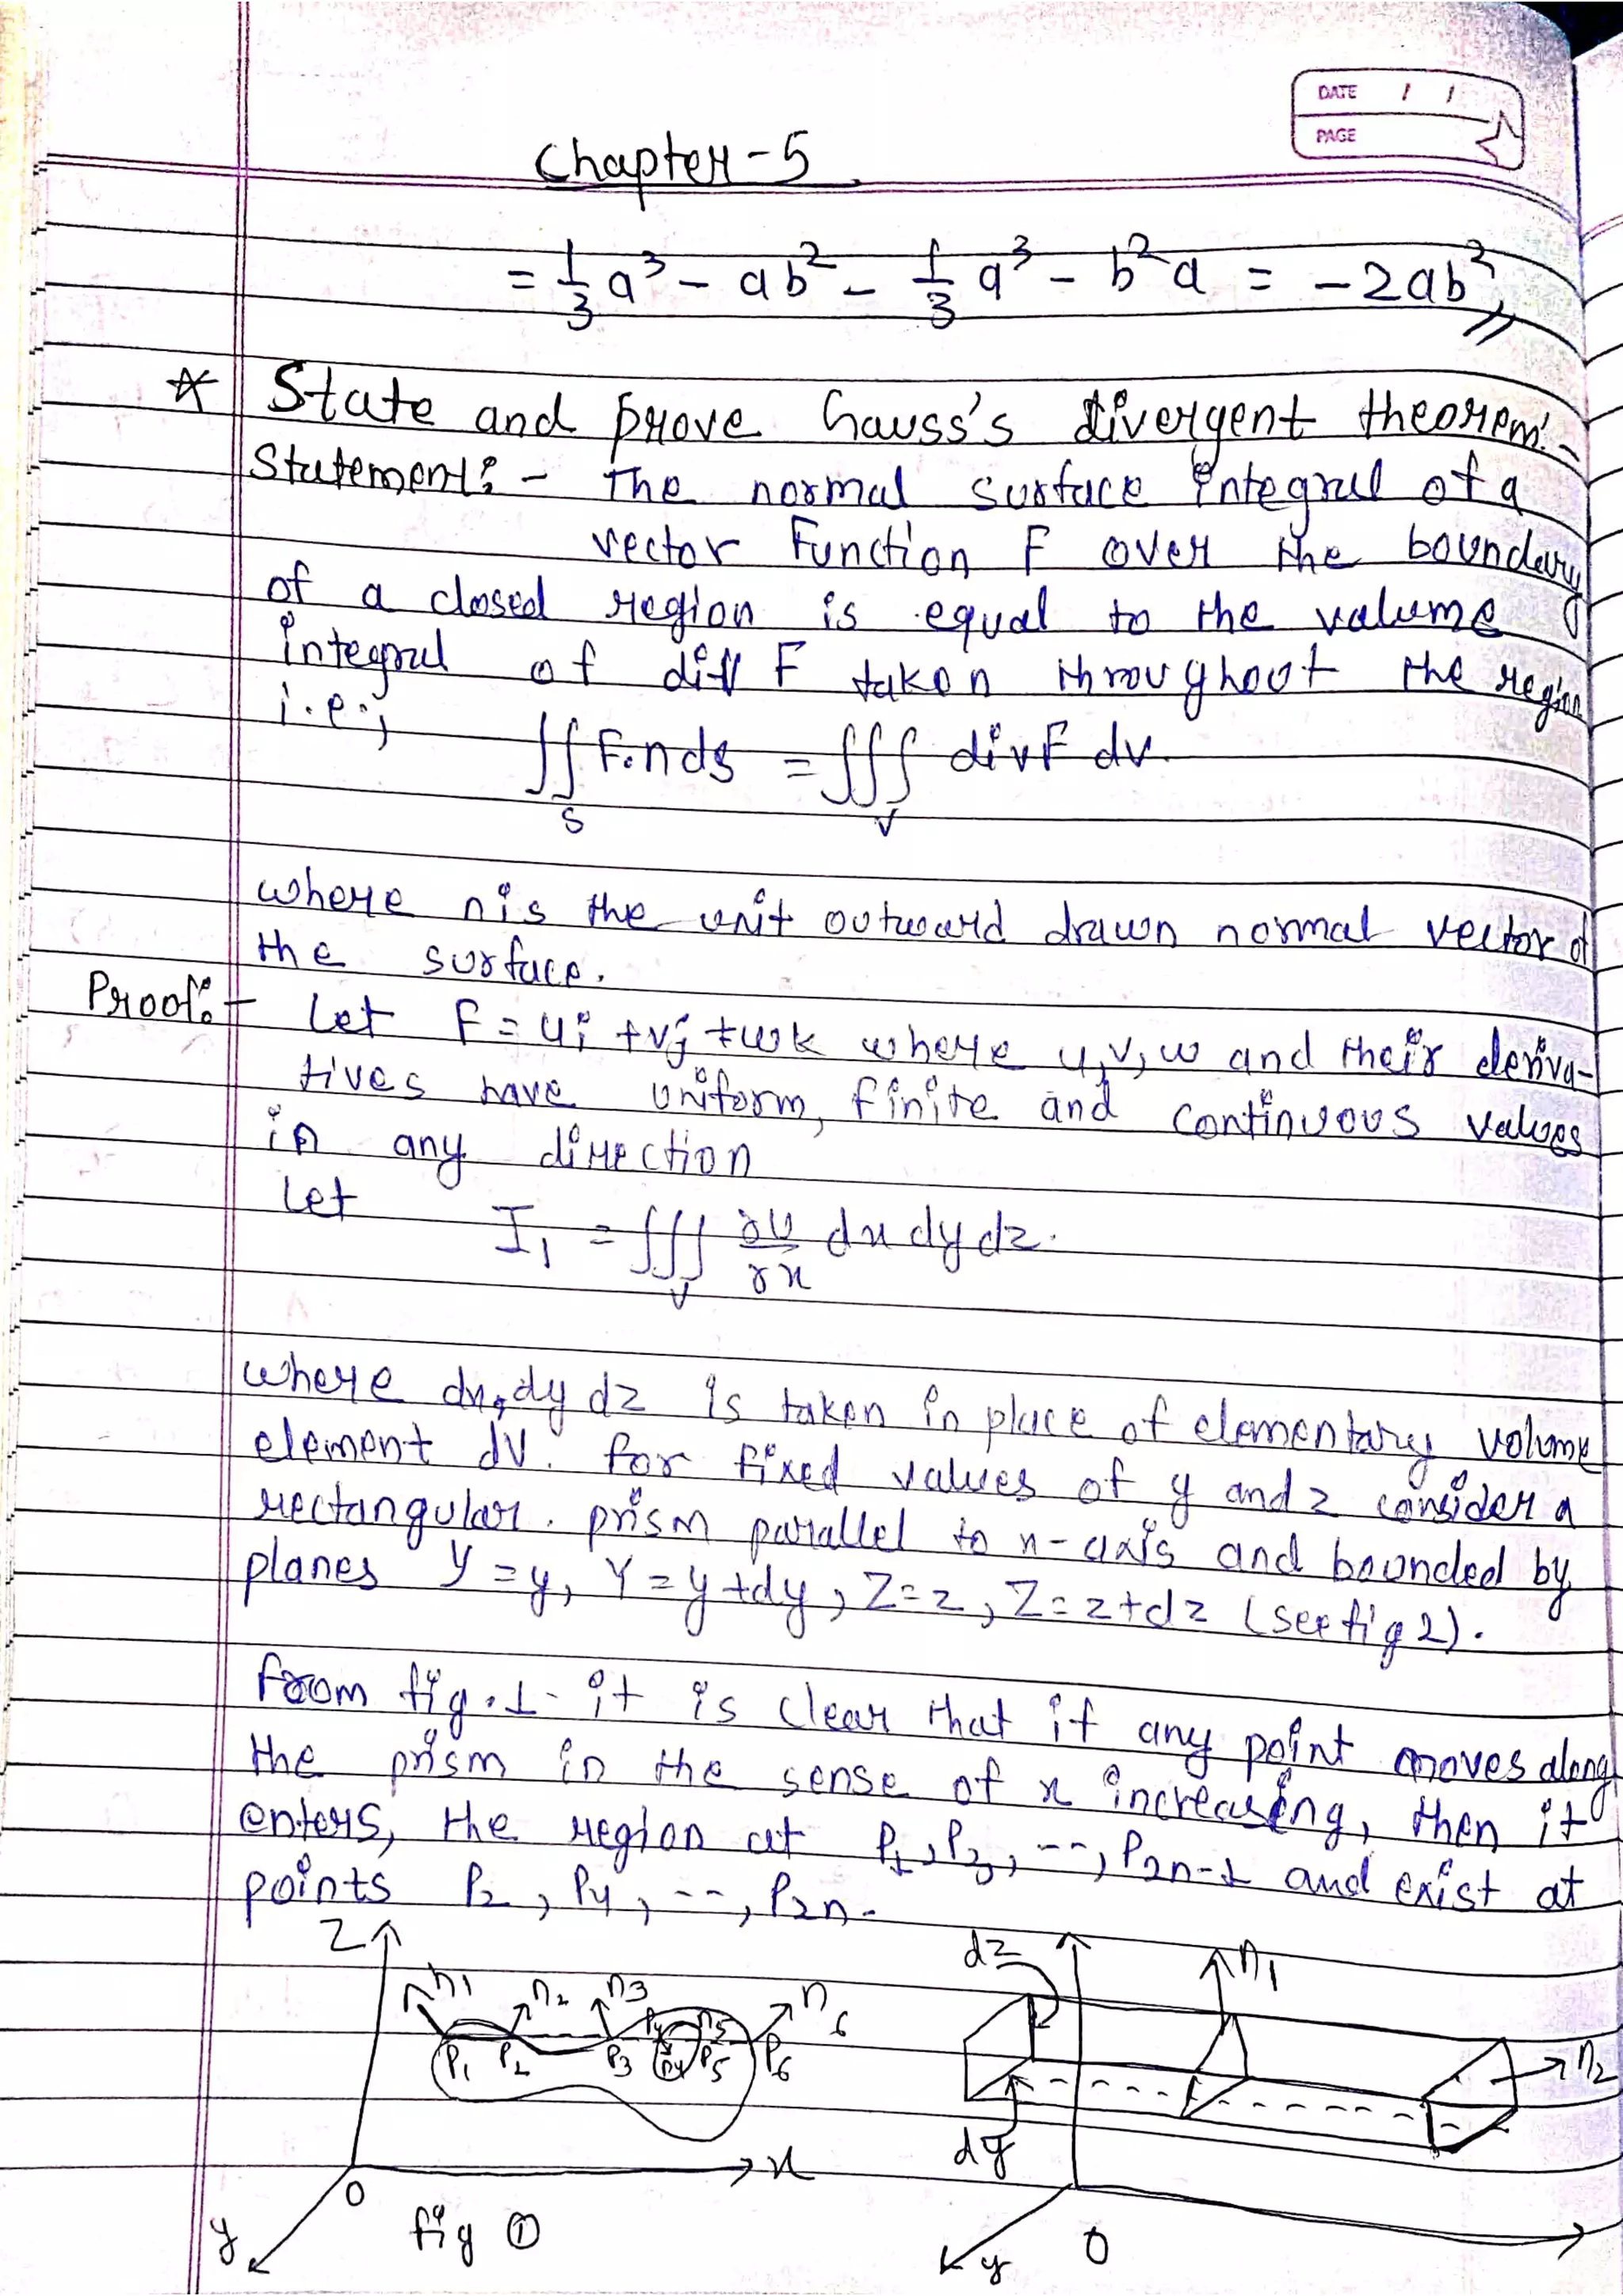 DATE / /
PAGE
Chapter-5
= 1/3 a³ - ab² - 1/3 a³ - b²a = -2ab²
☆ State and prove Gauss's divergent theorem:-
Statement:- The normal surface integral of a
vector Function F over the boundary
of a closed region is equal to the valume
integral of diff F taken throughout the region
i.e.,
∬_S F.n ds = ∭_V div F dv.
where n is the unit outward drawn normal vector of
the surface.
Proof:- Let F = ui + vj + wk where u, v, w and their deriva-
tives have uniform, finite and continuous values
in any direction
Let I₁ = ∭_V ∂u/∂x dx dy dz.
where dx, dy dz is taken in place of elementary volume
element dV. for fixed values of y and z consider a
rectangular. prism parallel to x-axis and bounded by
planes Y = y, Y = y + dy, Z = z, Z = z + dz (see fig 2).
From fig. 1- it is clear that if any point moves along
the prism in the sense of x increasing, then it
enters, the region at P₁, P₃, --, P₂n-1 and exist at
points P₂, P₄, --, P₂n.
Z n₁ n₂ n₃ n₅ n₆
P₁ P₂ P₃ P₄ P₅ P₆
O x
y fig ①
dz n₁
n₂
dy
y O